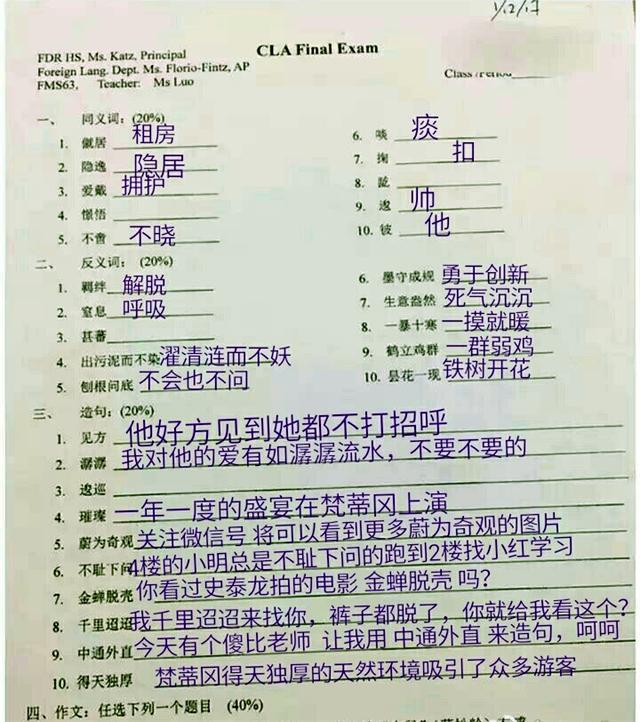 1/12/17
CLA Final Exam
FDR HS, Ms. Katz, Principal
Foreign Lang. Dept. Ms. Florio-Fintz, AP
FMS63, Teacher: Ms Luo
Class /Period
一、 同义词: (20%)
1. 僦居 租房
2. 隐逸 隐居
3. 爱戴 拥护
4. 憬悟
5. 不啻 不晓
6. 啖 痰
7. 掬 扣
8.
9. 逡 帅
10. 彼 他
二、 反义词: (20%)
1. 羁绊 解脱
2. 窒息 呼吸
3. 甚蕃
4. 出污泥而不染 濯清涟而不妖
5. 刨根问底 不会也不问
6. 墨守成规 勇于创新
7. 生意盎然 死气沉沉
8. 一暴十寒 一摸就暖
9. 鹤立鸡群 一群弱鸡
10. 昙花一现 铁树开花
三、 造句: (20%)
1. 见方 他好方见到她都不打招呼
2. 潺潺 我对他的爱有如潺潺流水，不要不要的
3. 逡巡
4. 璀璨 一年一度的盛宴在梵蒂冈上演
5. 蔚为奇观 关注微信号 将可以看到更多蔚为奇观的图片
6. 不耻下问 4楼的小明总是不耻下问的跑到2楼找小红学习
7. 金蝉脱壳 你看过史泰龙拍的电影 金蝉脱壳 吗？
8. 千里迢迢 我千里迢迢来找你，裤子都脱了，你就给我看这个？
9. 中通外直 今天有个傻比老师 让我用 中通外直 来造句，呵呵
10. 得天独厚 梵蒂冈得天独厚的天然环境吸引了众多游客
四、作文：任选下列一个题目 (40%)